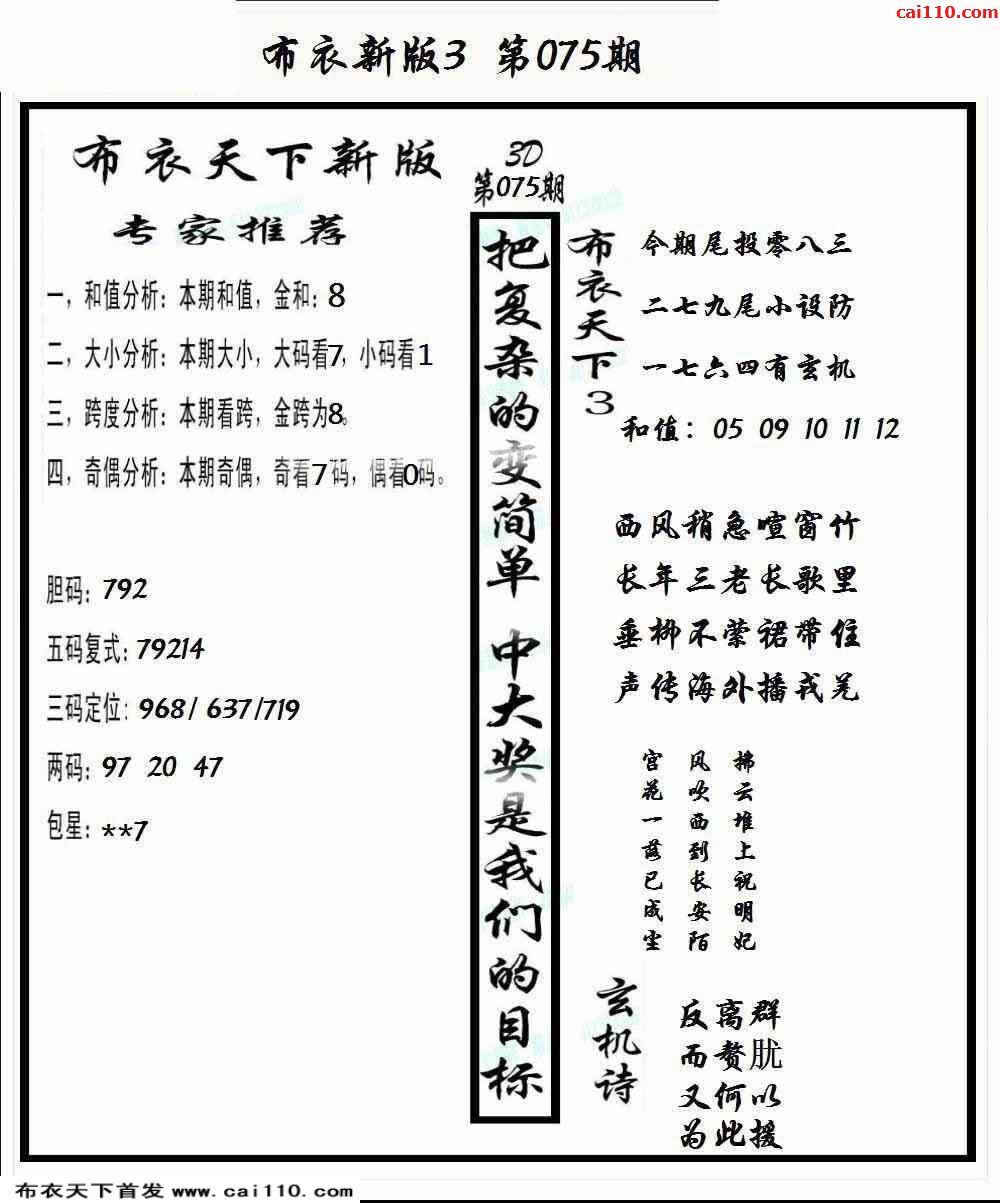 cai110.com
布衣新版3 第075期
布衣天下新版
专家推荐
一，和值分析：本期和值，金和：8
二，大小分析：本期大小，大码看7，小码看1
三，跨度分析：本期看跨，金跨为8。
四，奇偶分析：本期奇偶，奇看7码，偶看0码。
胆码：792
五码复式：79214
三码定位：968/ 637/719
两码：97 20 47
包星：**7
3D
第075期
把复杂的变简单 中大奖是我们的目标
布衣天下3
今期尾投零八三
二七九尾小设防
一七六四有玄机
和值：05 09 10 11 12
西风稍急喧窗竹
长年三老长歌里
垂柳不萦裙带住
声传海外播戎羌
拂云堆上祝明妃
风吹西到长安陌
宫花一落已成尘
玄机诗
反离群
而赘肬
又何以
为此援
布衣天下首发 www.cai110.com